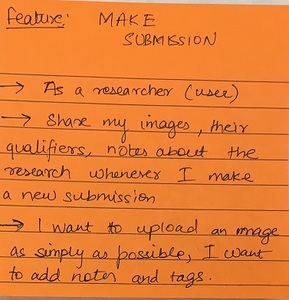 feature: MAKE
SUBMISSION
→ As a researcher (user)
→ Share my images, their
qualifiers, notes about the
research whenever I make
a new submission
→ I want to upload an image
as simply as possible, I want
to add notes and tags.